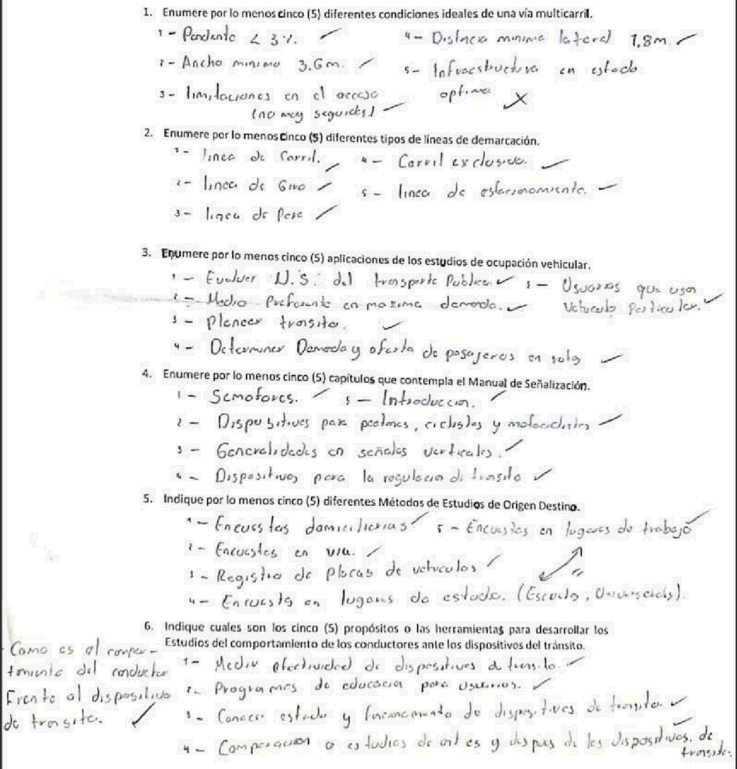 1. Enumere por lo menos cinco (5) diferentes condiciones ideales de una vía multicarril.
1- Pendiente < 3%.
2- Ancho minimo 3.6m.
3- limitaciones en el acceso
(no muy seguidas)
4- Distancia minima lateral 1,8m
5- Infraestructura en estado
optimo
2. Enumere por lo menos cinco (5) diferentes tipos de líneas de demarcación.
1- linea de Carril.
2- linea de Giro
3- linea de Pare
4- Carril exclusivo.
5- linea de estacionamiento.
3. Enumere por lo menos cinco (5) aplicaciones de los estudios de ocupación vehicular.
1- Evaluar N.S. del transporte Publico.
2- Medio Preferente en maxima demanda.
3- Planear transito.
4- Determinar Demanda y oferta de pasajeros en
5- Usuarios que usan
Vehiculo Particular.
4. Enumere por lo menos cinco (5) capítulos que contempla el Manual de Señalización.
1- Semaforos.
2- Dispositivos para peatones, ciclistas y motociclistas
3- Generalidades en señales verticales.
4- Dispositivos para la regulacion de transito
5- Introduccion.
5. Indique por lo menos cinco (5) diferentes Métodos de Estudios de Origen Destino.
1- Encuestas domiciliarias
2- Encuestas en via.
3- Registro de placas de vehiculos
4- Encuesta en lugares de estudio. (Escuela, Universidad).
5- Encuestas en lugares de trabajo
6. Indique cuales son los cinco (5) propósitos o las herramientas para desarrollar los
Estudios del comportamiento de los conductores ante los dispositivos del tránsito.
1- Medir efectividad de dispositivos de transito.
2- Programas de educacion para usuarios.
3- Conocer estado y funcionamiento de dispositivos de transito
4- Comparacion o estudios de antes y despues de los dispositivos. de
transito.
Como es el compor-
tamiento del conductor
Frente al dispositivo
de transito.